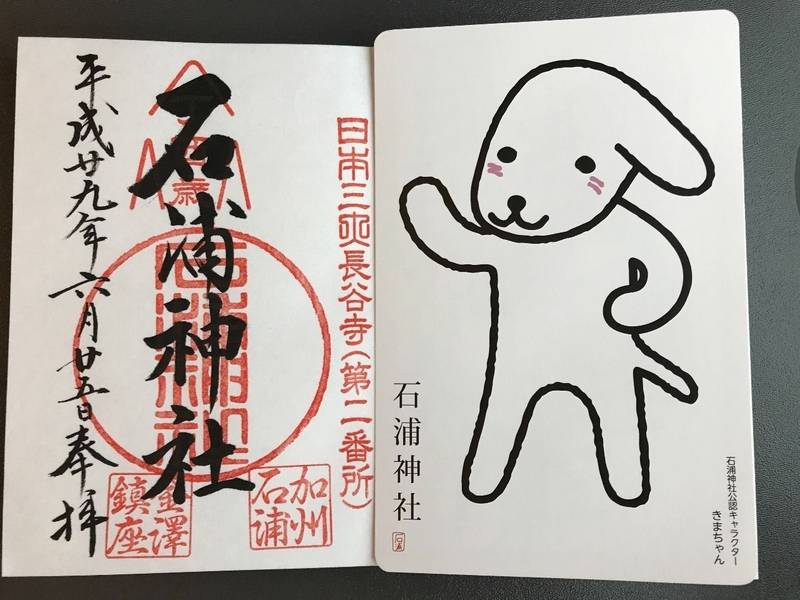 日本三大長谷寺（第二番所）
石浦神社
加州
石浦
金澤
鎮座
平成廿九年六月廿五日奉拝
石浦神社
石浦神社公認キャラクター
きまちゃん